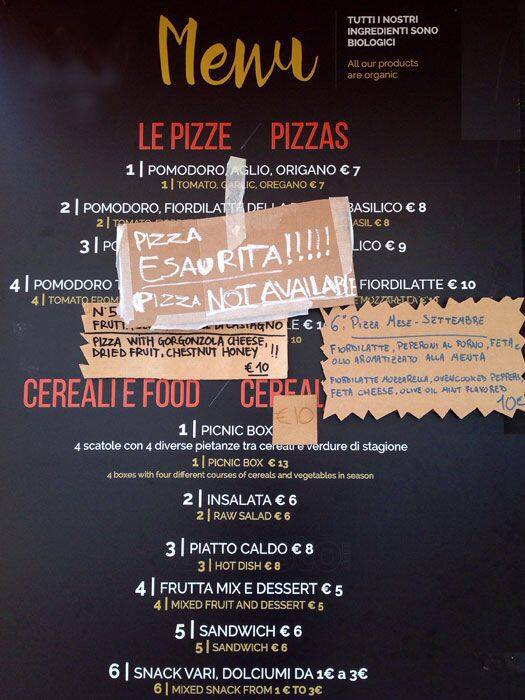 Menu
TUTTI I NOSTRI
INGREDIENTI SONO
BIOLOGICI
All our products
are organic
LE PIZZE / PIZZAS
1 | POMODORO, AGLIO, ORIGANO € 7
1 | TOMATO, GARLIC, OREGANO € 7
2 | POMODORO, FIORDILATTE DELLA BASILICO € 8
2 | € 8
3 | € 9
PIZZA
ESAURITA!!!!!
PIZZA NOT AVAILABLE
4 | POMODORO FIORDILATTE € 10
4 | TOMATO FROM
N°5
PIZZA WITH GORGONZOLA CHEESE,
DRIED FRUIT, CHESTNUT HONEY !!
€ 10
6° PIZZA MESE - SETTEMBRE
FIORDILATTE, PEPERONI AL FORNO, FETA e
OLIO AROMATIZZATO ALLA MENTA
FIORDILATTE MOZZARELLA, OVENCOOKED PEPPERS
FETA CHEESE, OLIVE OIL MINT FLAVORED
10€
CEREALI E FOOD /
€ 10
1 | PICNIC BOX
4 scatole con 4 diverse pietanze tra cereali e verdure di stagione
1 | PICNIC BOX € 13
4 boxes with four different courses of cereals and vegetables in season
2 | INSALATA € 6
2 | RAW SALAD € 6
3 | PIATTO CALDO € 8
3 | HOT DISH € 8
4 | FRUTTA MIX E DESSERT € 5
4 | MIXED FRUIT AND DESSERT € 5
5 | SANDWICH € 6
5 | SANDWICH € 6
6 | SNACK VARI, DOLCIUMI DA 1€ a 3€
6 | MIXED SNACK FROM 1 € TO 3€